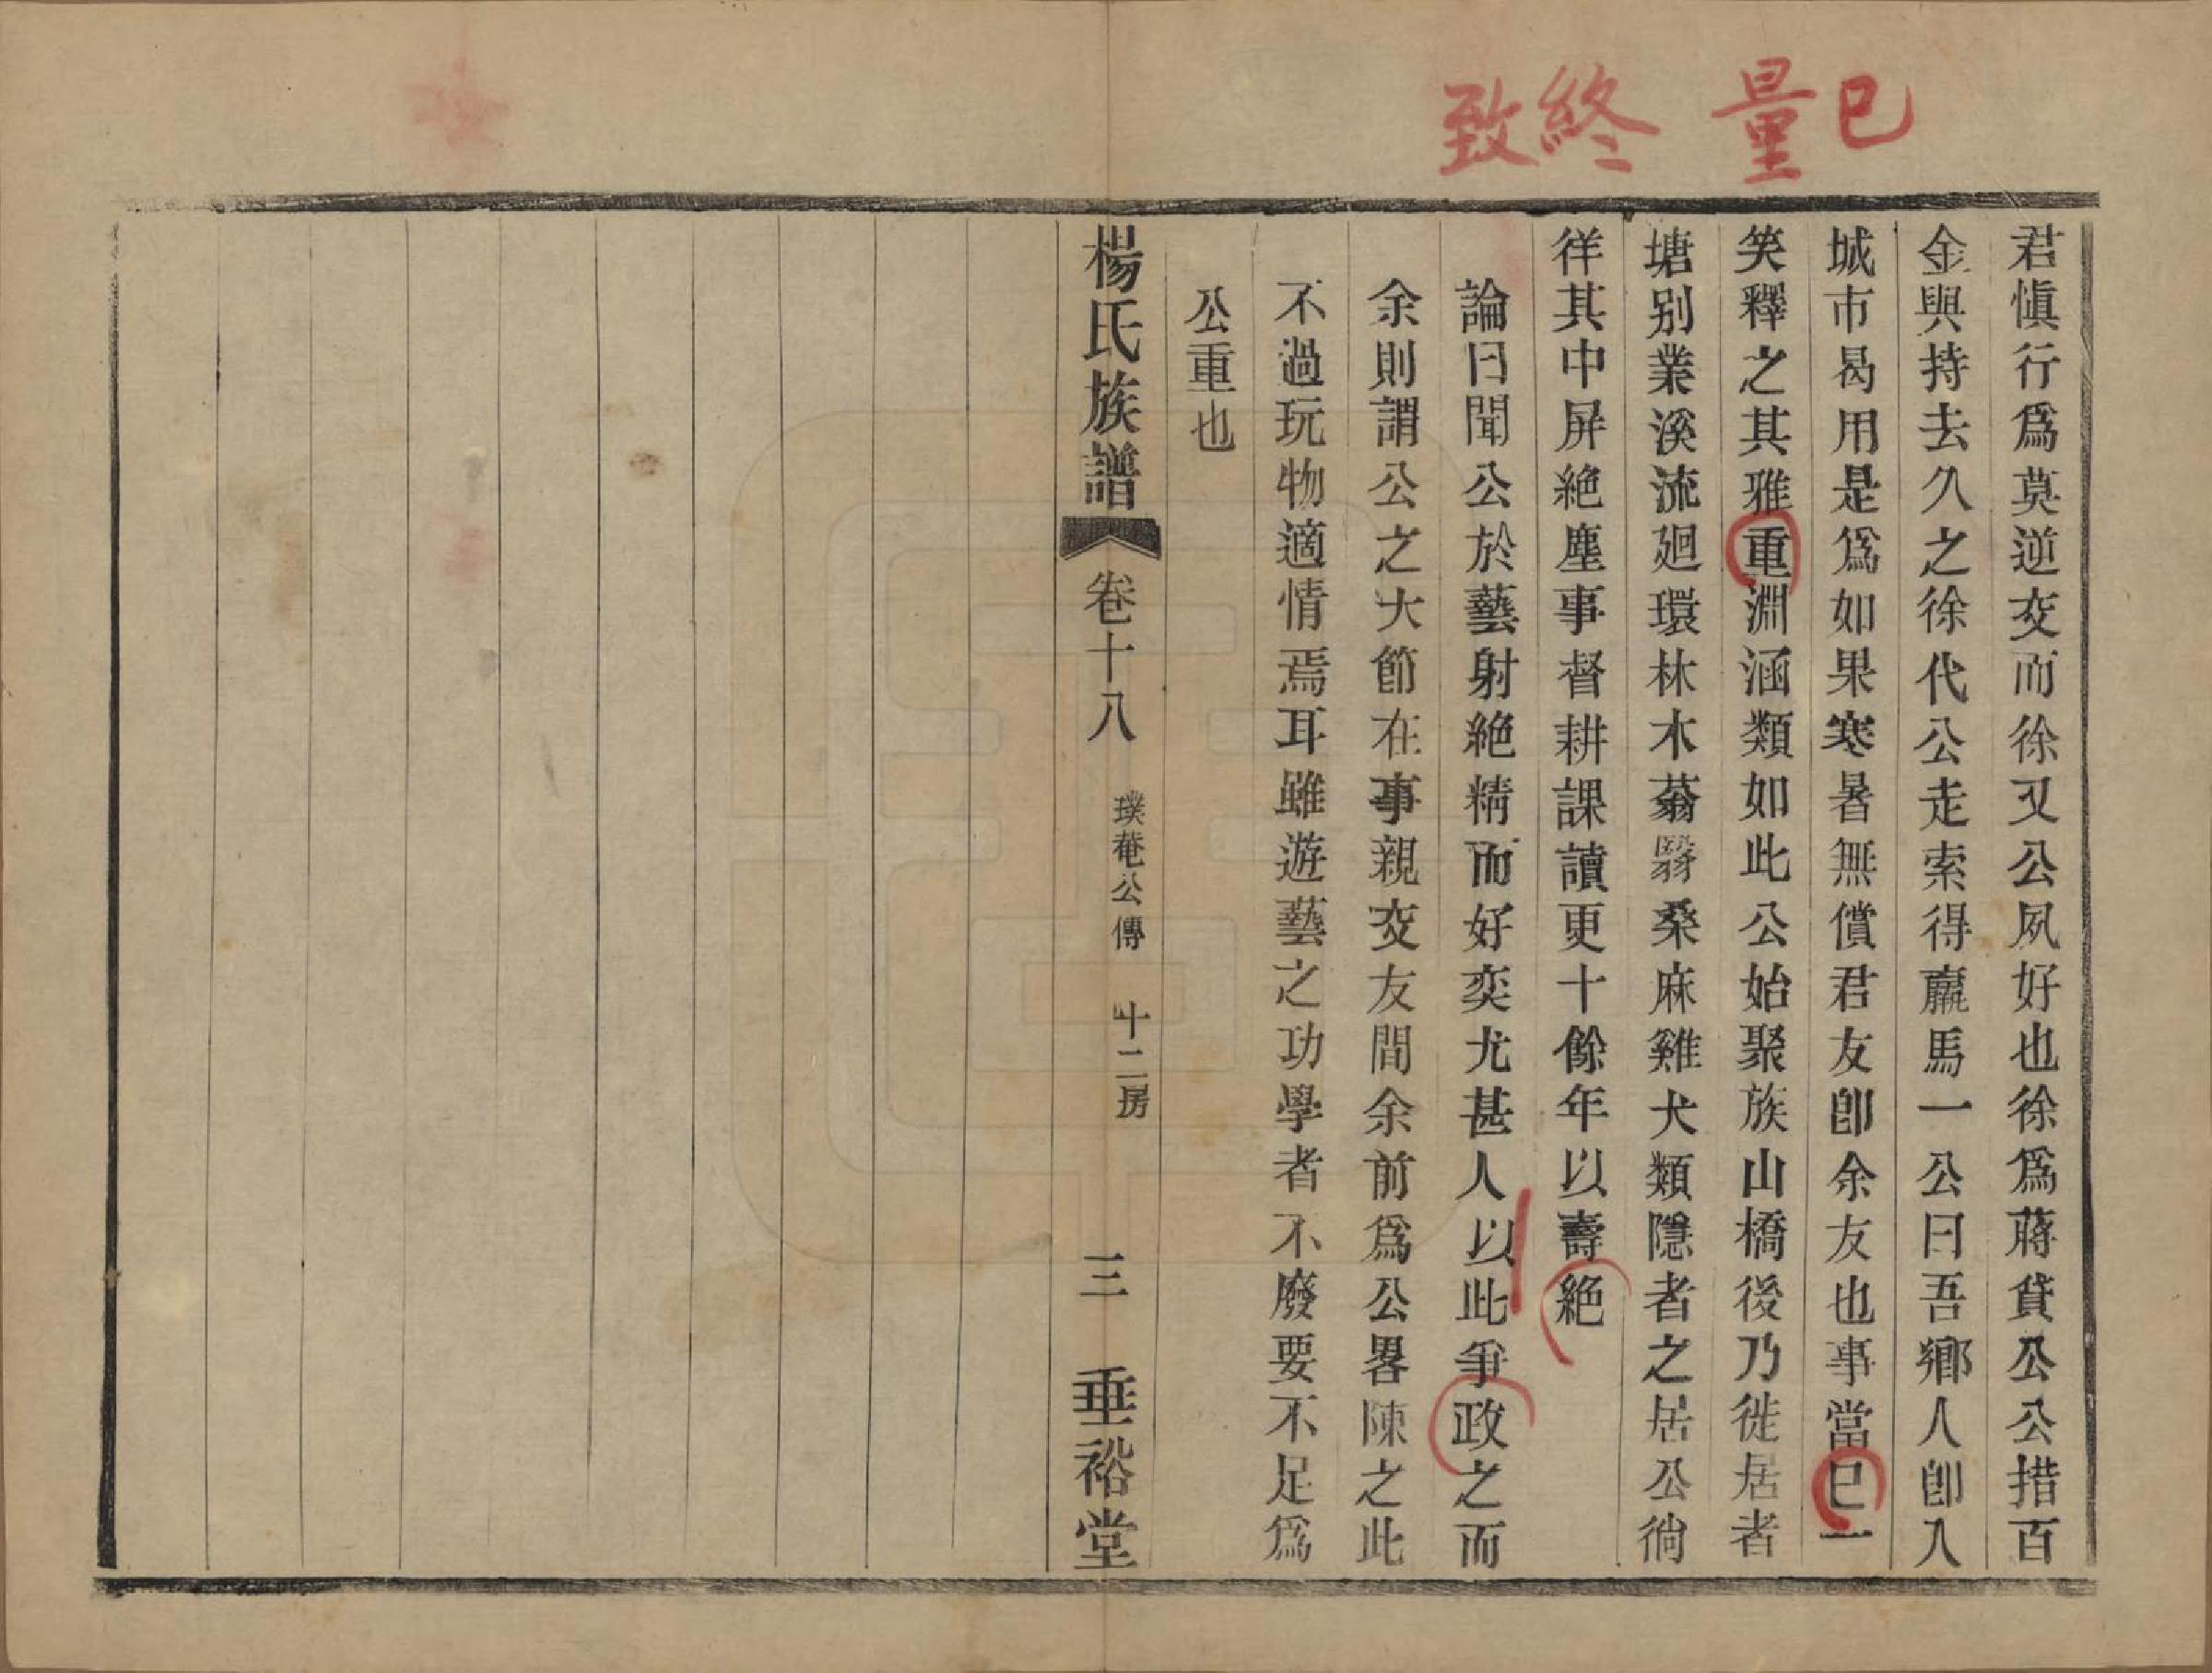 已　量　終致
君愼行爲莫逆交而徐又公夙好也徐爲蔣貸公公措百
金與持去久之徐代公走索得羸馬一公曰吾鄉人卽入
城市曷用是爲如果寒暑無償君友卽余友也事當巳一
笑釋之其雅重淵涵類如此公始聚族山橋後乃徙居者
塘别業溪流廻環林木蓊翳桑麻雞犬類隱者之居公徜
徉其中屏絶塵事督耕課讀更十餘年以壽絶
論曰聞公於藝射絶精而好奕尤甚人以此爭政之而
余則謂公之大節在事親交友間余前爲公畧陳之此
不過玩物適情焉耳雖遊藝之功學者不廢要不足爲
公重也
楊氏族譜　卷十八　璞菴公傳　十二房　三　垂裕堂